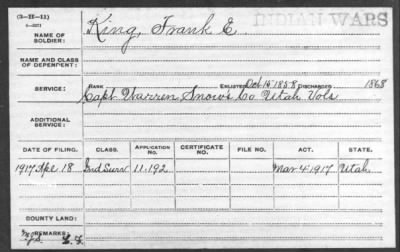 (3-H-11)
INDIAN WARS
NAME OF SOLDIER: King, Frank E.
NAME AND CLASS OF DEPENDENT:
SERVICE: RANK ENLISTED Oct 15 1858 DISCHARGED 1868
Capt Warren Snow's Co Utah Vols
ADDITIONAL SERVICE:
DATE OF FILING. CLASS. APPLICATION NO. CERTIFICATE NO. FILE NO. ACT. STATE.
1917 Apl 18 Ind Surv 11.192 Mar 4 1917 Utah
BOUNTY LAND:
REMARKS: